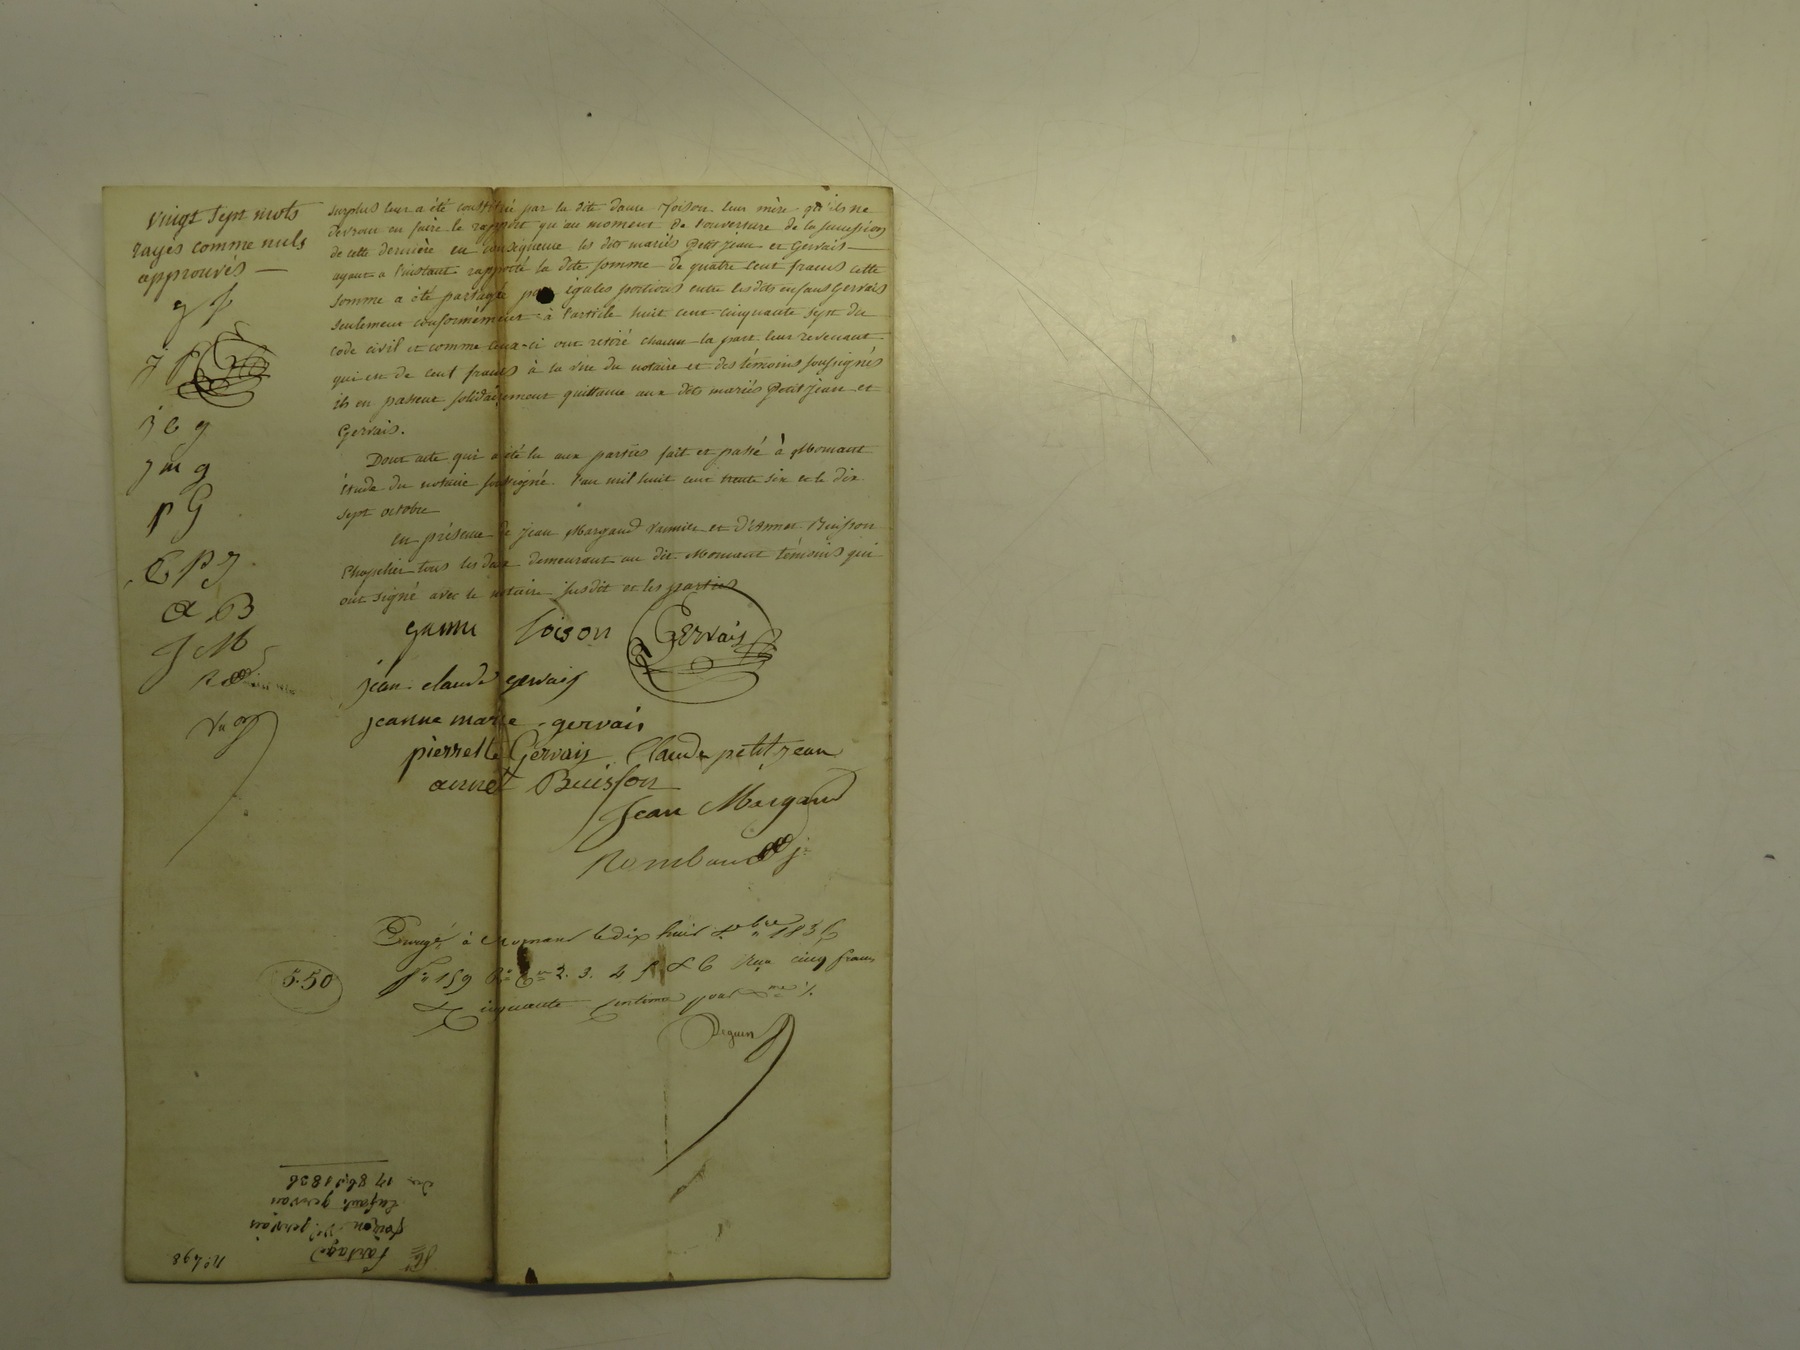 vingt sept mots
rayés comme nuls
approuvés —
g f
J P
j c g
j m g
p G
C P J
a B
J M
surplus leur a été constitué par la dite dame Foison leur mère qu'ils ne
devront en faire le rapport qu'au moment de l'ouverture de la succession
de cette dernière en conséquence les dits mariés Petit jean et Gervais —
ayant a l'instant rapporté la dite somme de quatre cent francs cette
somme a été partagée par égales portions entre les dits enfans Gervais
seulement conformément à l'article huit cent cinquante sept du
code civil et comme ceux-ci ont retiré chacun la part leur revenant
qui est de cent francs à la vue du notaire et des témoins soussignés
ils en passent solidairement quittance aux dits mariés Petit jean et
Gervais.
Dont acte qui a été lu aux parties fait et passé à Mornant
étude du notaire soussigné. l'an mil huit cent trente six et le dix
sept octobre
en présence de jean Margaud vannier et d'Annet Buisson
Chapelier tous les deux demeurant au dit Mornant témoins qui
ont signé avec le notaire susdit et les parties
foison Gervais
jean claude gervais
jeanne marie gervais
pierrette Gervais Claude petit jean
annet Buisson
Jean Margaud
à Mornant le dix huit 8bre 1836
f° 159 R° Cen 2. 3. 4 5 & 6 Reçu cinq francs
cinquante Centimes pour
5.50
Deguin
N° 498
Partage
foison Ve gervais
Enfants gervais
du 17 8bre 1836